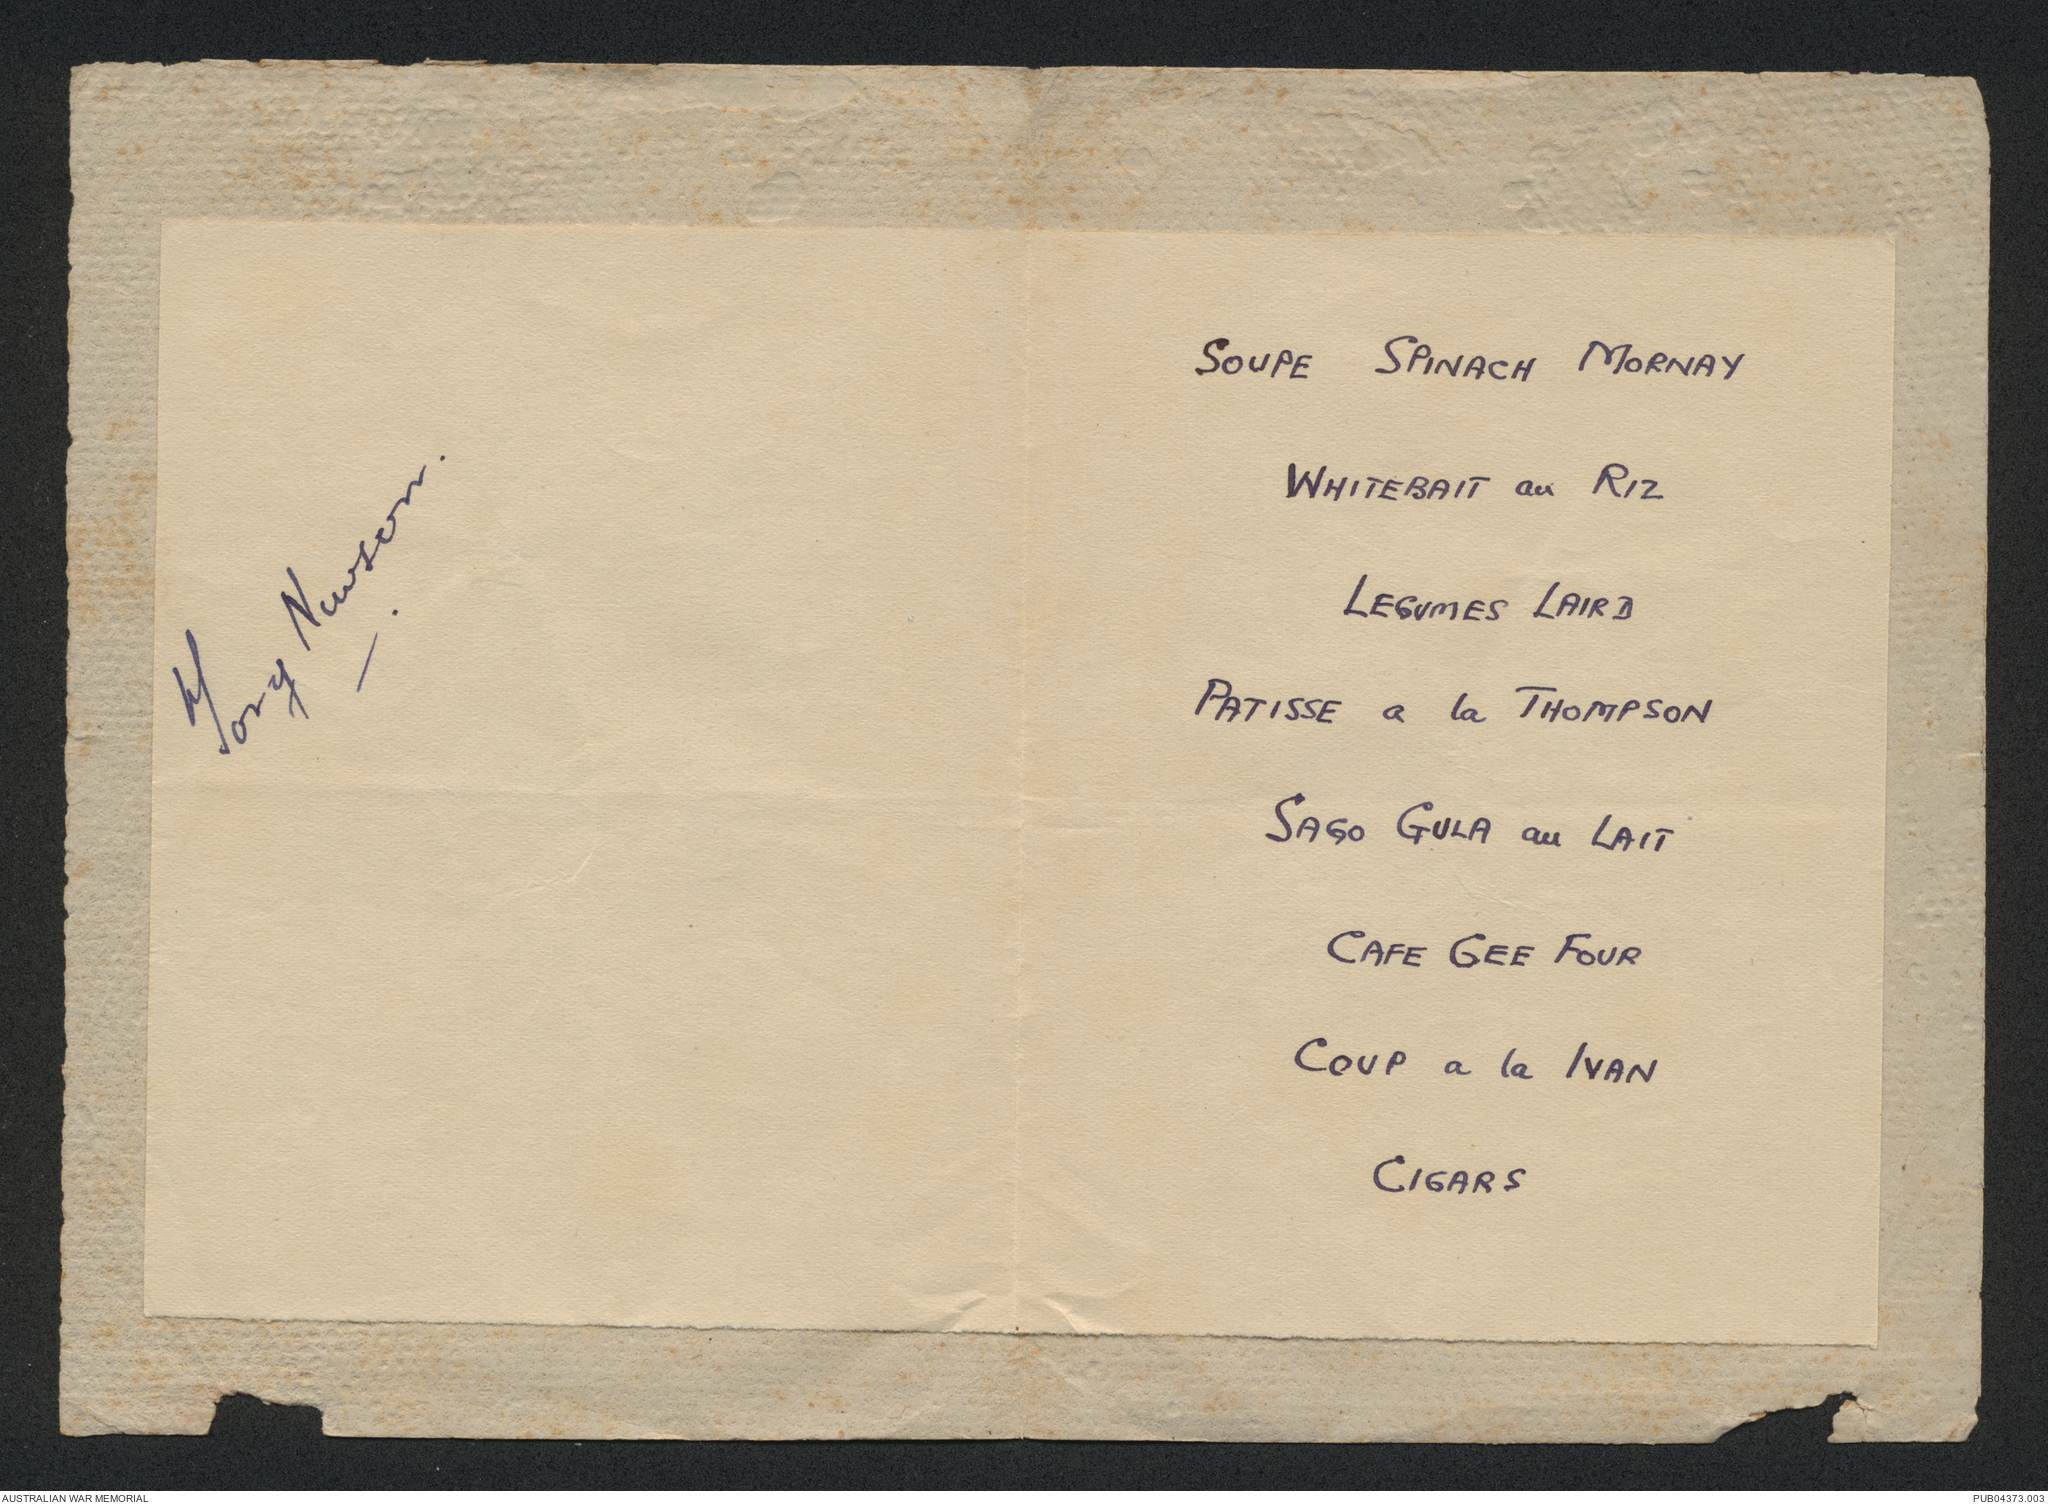 Tony Newson.
SOUPE SPINACH MORNAY
WHITEBAIT au RIZ
LEGUMES LAIRD
PATISSE a la THOMPSON
SAGO GULA au LAIT
CAFE GEE FOUR
COUP a la IVAN
CIGARS
AUSTRALIAN WAR MEMORIAL
PUB04373.003